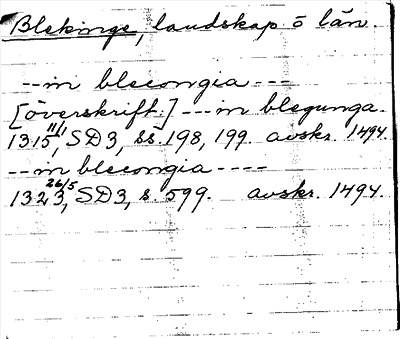 Blekinge, landskap o län.
--in blecongia---
[överskrift:] ---in blegunga.
1315 11/1, SD3, ss. 198, 199. avskr. 1494.
--in blecongia----
1323 26/5, SD3, s. 599. avskr. 1494.